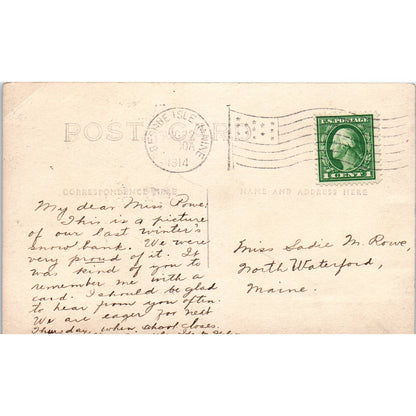 POST CARD
PRESQUE ISLE, MAINE
1914
U.S. POSTAGE
1 CENT 1
CORRESPONDENCE HERE
NAME AND ADDRESS HERE
My dear Miss Rowe:
This is a picture
of our last winter's
snow bank. We were
very proud of it. It
was kind of you to
remember me with a
card. I should be glad
to hear from you often.
We are eager for next
Thursday, when school closes.
Miss Sadie M. Rowe,
North Waterford,
Maine.